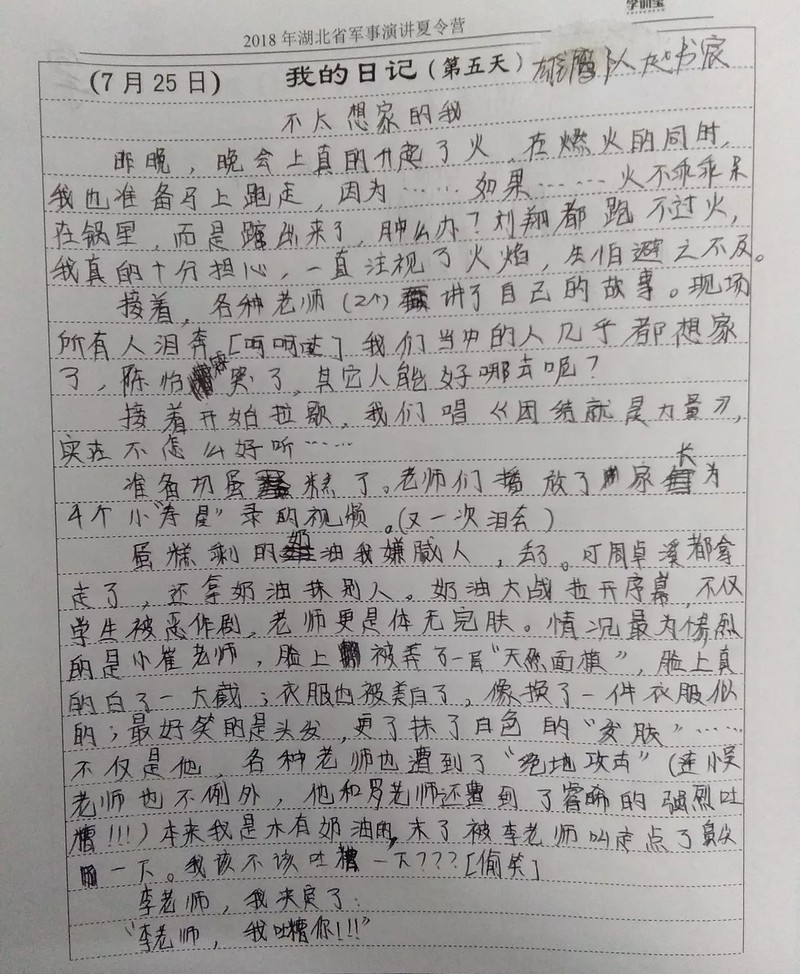 学训宝
2018年湖北省军事演讲夏令营
(7月25日) 我的日记(第五天) 雄鹰队 书宸
不太想家的我
昨晚，晚会上真的升起了火，在燃火的同时，
我也准备马上跑走，因为……如果……火不乖乖呆
在锅里，而是蹿出来了，肿么办？刘翔都跑不过火，
我真的十分担心，一直注视了火焰，生怕避之不及。
接着，各种老师(2个)讲了自己的故事。现场
所有人泪奔[呵呵哒]我们当中的人几乎都想家
了，陈怡霖哭了，其它人能好哪去呢？
接着开始拉歌，我们唱《团结就是力量》，
实在不怎么好听……
准备切蛋糕了。老师们播放了家长为
4个小“寿星”录的视频。(又一次泪奔)
蛋糕剩的奶油我嫌腻人，丢了。可周卓溪都拿
走了，还拿奶油抹别人。奶油大战拉开序幕，不仅
学生被恶作剧，老师更是体无完肤。情况最为惨烈
的是小崔老师，脸上被弄了一层“天然面膜”，脸上真
的白了一大截；衣服也被美白了，像换了一件衣服似
的；最好笑的是头发，更了抹了白色的“发肤”……
不仅是他，各种老师也遭到了“绝地攻击”(连小吴
老师也不例外，他和罗老师还遭到了睿晞的强烈吐
槽!!!)本来我是木有奶油的，末了被李老师叫走点了鼻尖
一下。我该不该吐槽一下???[偷笑]
李老师，我决定了：
“李老师，我吐槽你!!!”